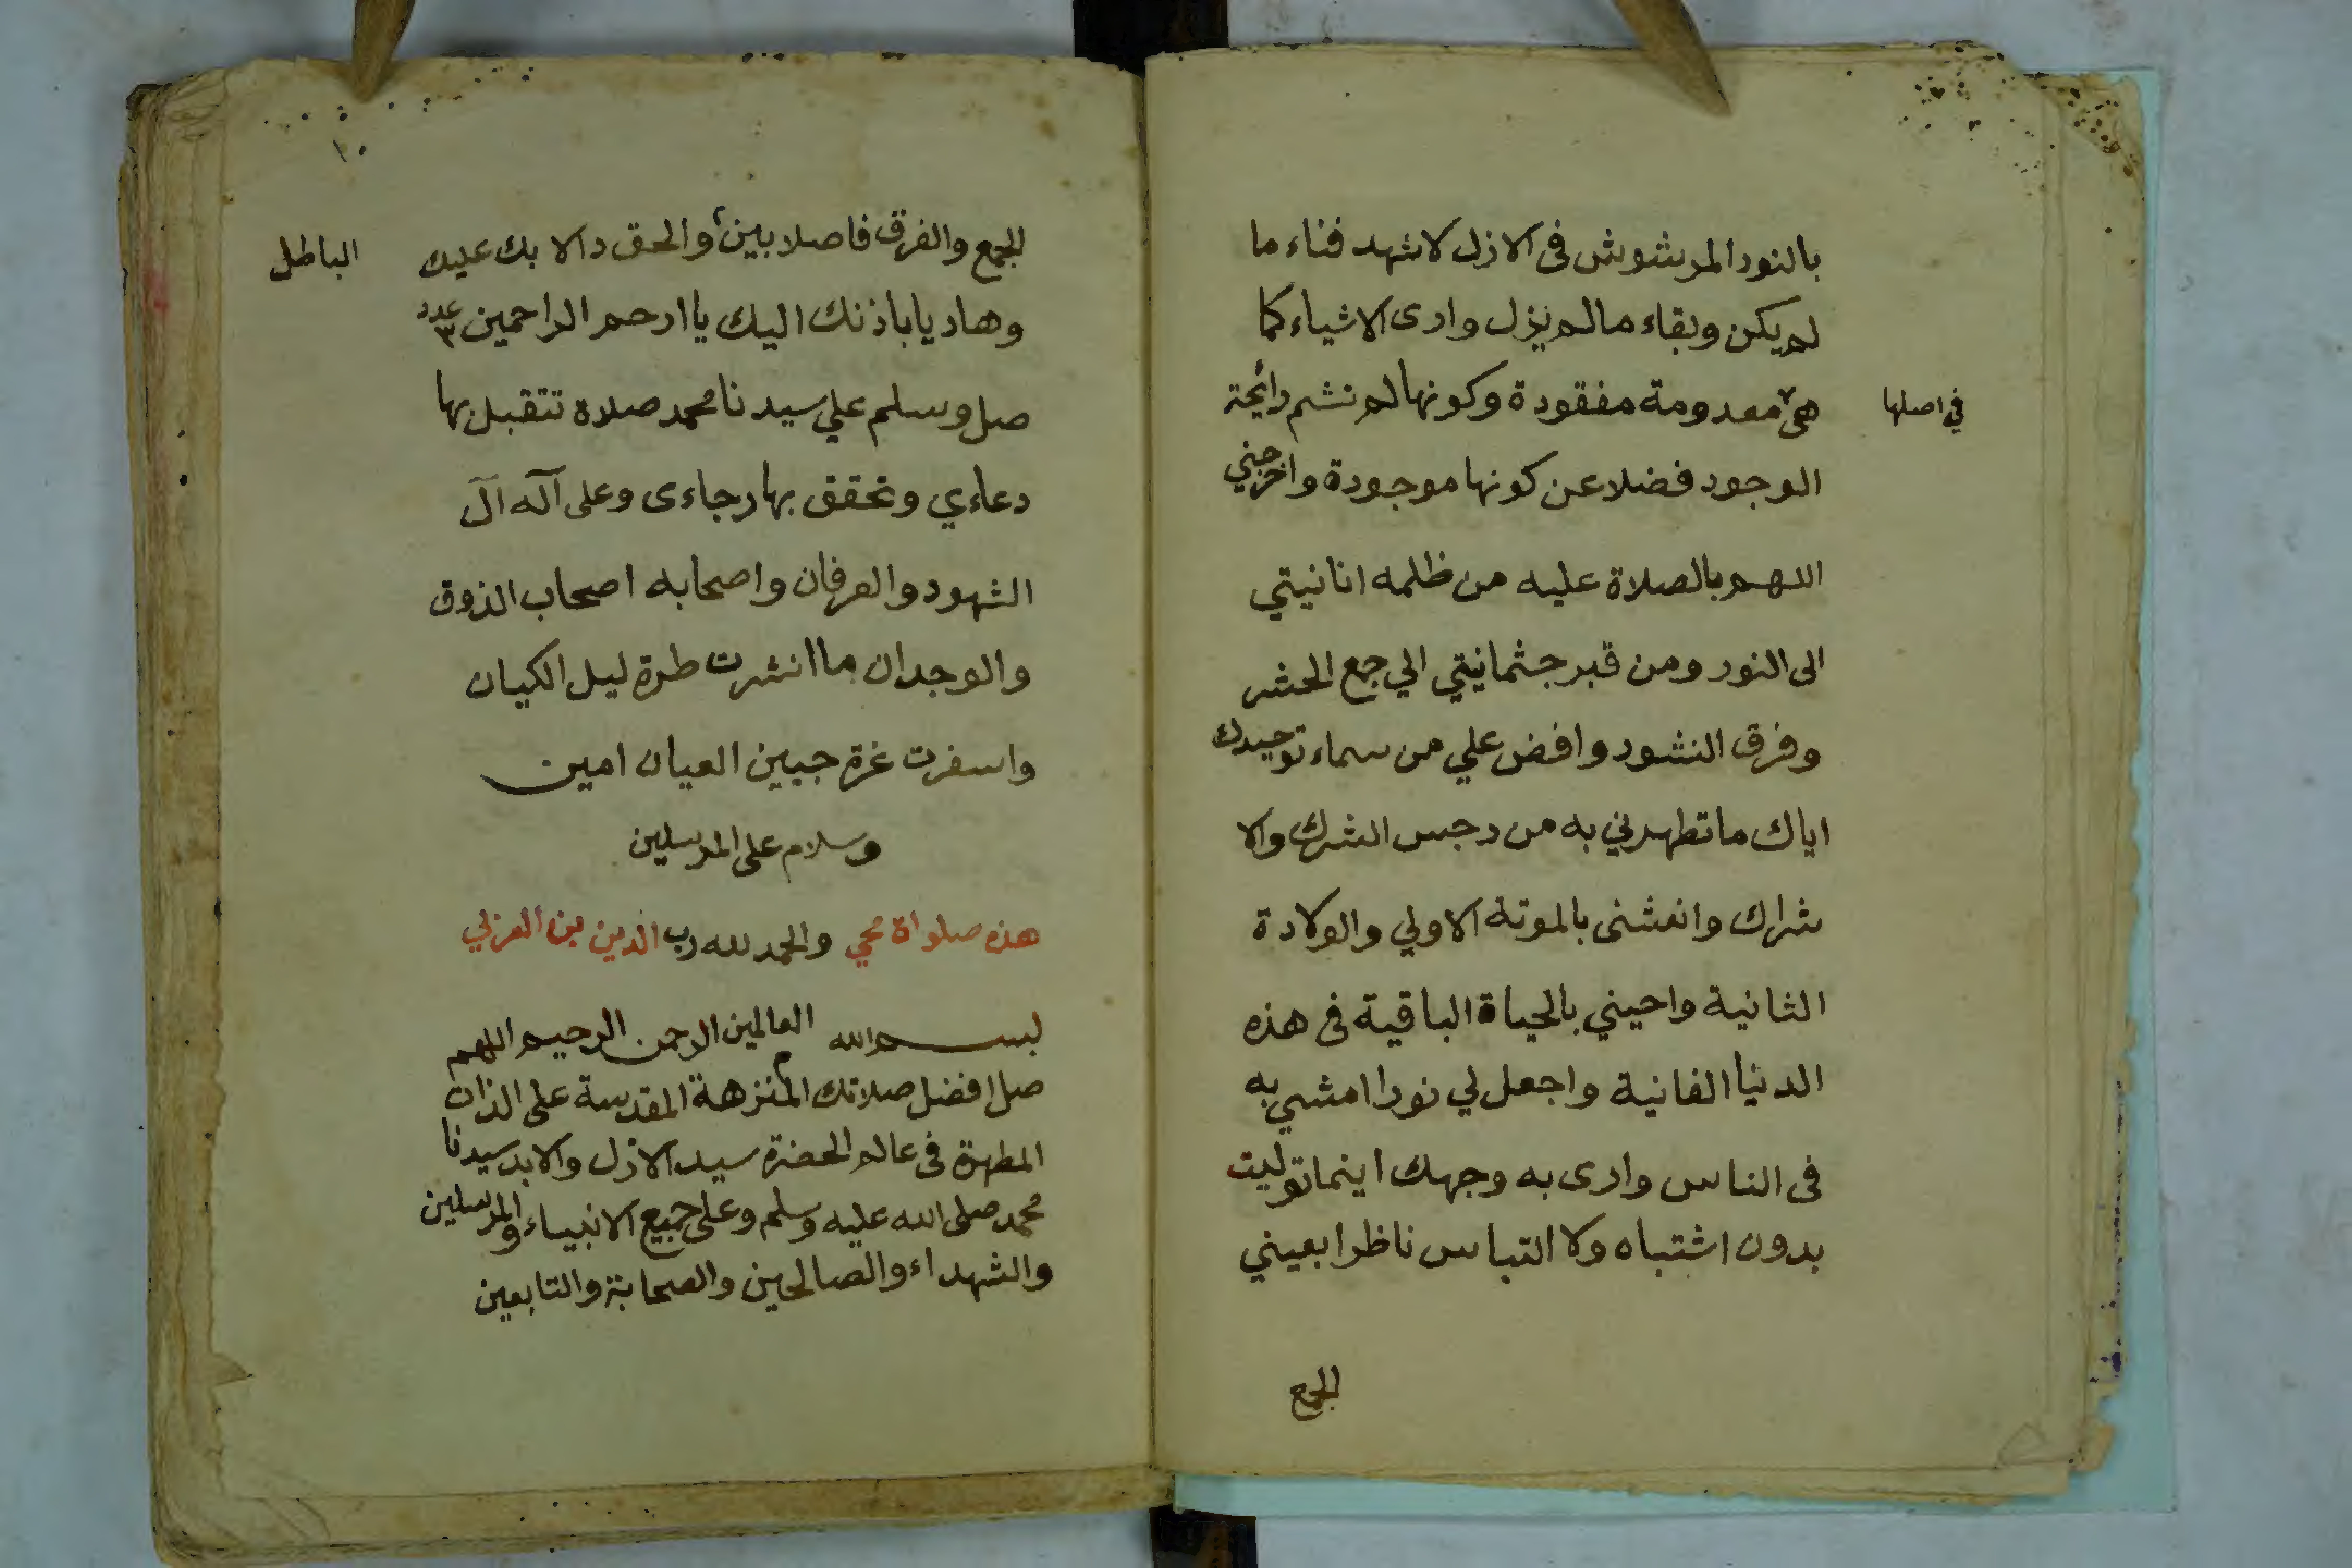 بالنور المرشوش فى الازل لاشهد فناء ما
لم يكن وبقاء مالم يزل وارى الاشياء كما
هى معدومة مفقودة وكونها لم تشم رائحة
في اصلها
الوجود فضلا عن كونها موجودة واخرجني
اللهم بالصلاة عليه من ظلمه انانيتي
الى النور ومن قبر جثمانيتي الي جمع الحشر
وفرق النشور وافض علي من سماء توحيدك
اياك ما تطهرني به من رجس الشرك والا
شراك وانعشنى بالموتة الاولي والولادة
الثانية واحيني بالحياة الباقية فى هذه
الدنيا الفانية واجعل لي نورا امشي به
فى الناس وارى به وجهك اينما توليت
بدون اشتباه ولا التباس ناظرا بعيني
الجمع
١٠
الجمع والفرق فاصلا بين والحق دالا بك عليك
الباطل
وهاديا باذنك اليك يا ارحم الراحمين عدد ٣
صل وسلم علي سيدنا محمد صلاة تتقبل بها
دعاءي وتحقق بها رجاءى وعلى آله آل
الشهود والعرفان واصحابه اصحاب الذوق
والوجدان ما انشرت طرة ليل الكيان
واسفرت غرة جبين العيان امين
وسلام على المرسلين
هذه صلواة محي والحمد لله رب الدين بن العربي
بسم الله العالمين الرحمن الرحيم اللهم
صل افضل صلاتك المنزهة المقدسة على الذات
المطهرة فى عالم الحضرة سيد الازل والابد سيدنا
محمد صلى الله عليه وسلم وعلى جميع الانبياء والمرسلين
والشهداء والصالحين والصحابة والتابعين